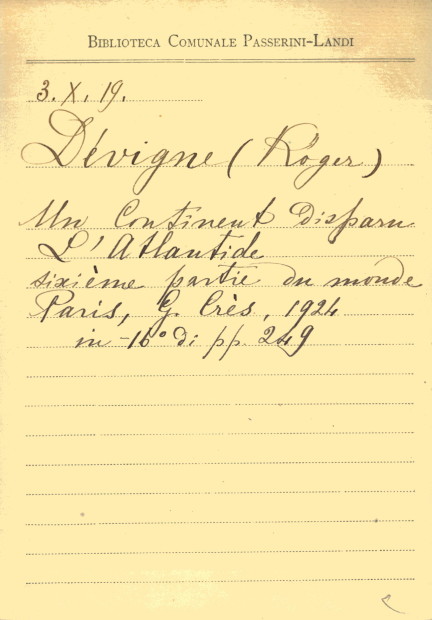 BIBLIOTECA COMUNALE PASSERINI-LANDI
3. X. 19.
Dévigne (Roger)
Un Continent Disparu
L'Atlantide
sixième partie du monde
Paris, G. Crès, 1924
in-16° di pp. 249